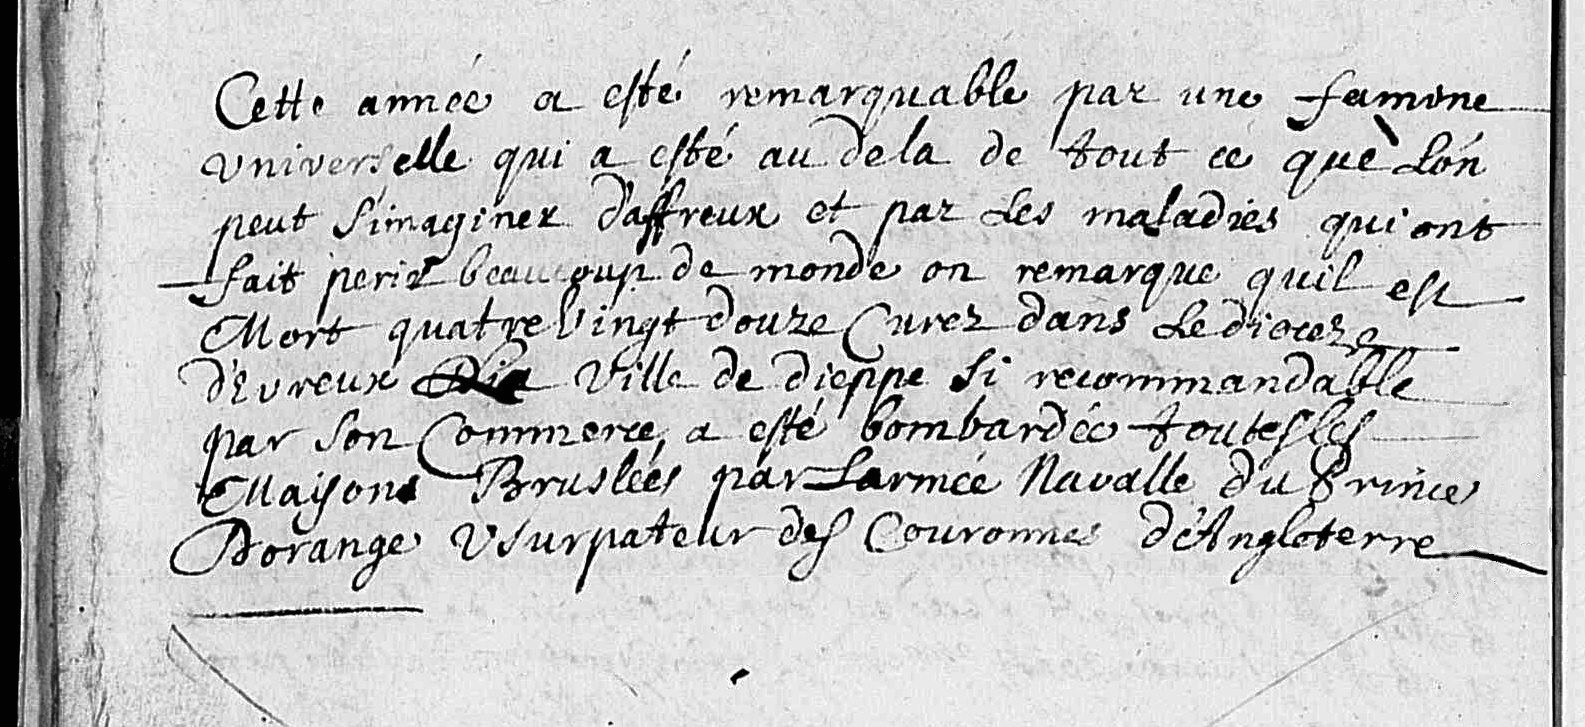 Cette année a esté remarquable par une famine
universelle qui a esté au dela de tout ce que L'on
peut s'imaginer d'affreux et par Les maladies qui ont
fait perir beaucoup de monde on remarque quil est
Mort quatre vingt douze Curez dans Le dioceze
d'Evreux La Ville de dieppe si recommandable
par son Commerce, a esté bombardée toutes les
Maisons Bruslées par Larmée Navalle du Prince
Dorange Usurpateur des Couronnes d'Angleterre